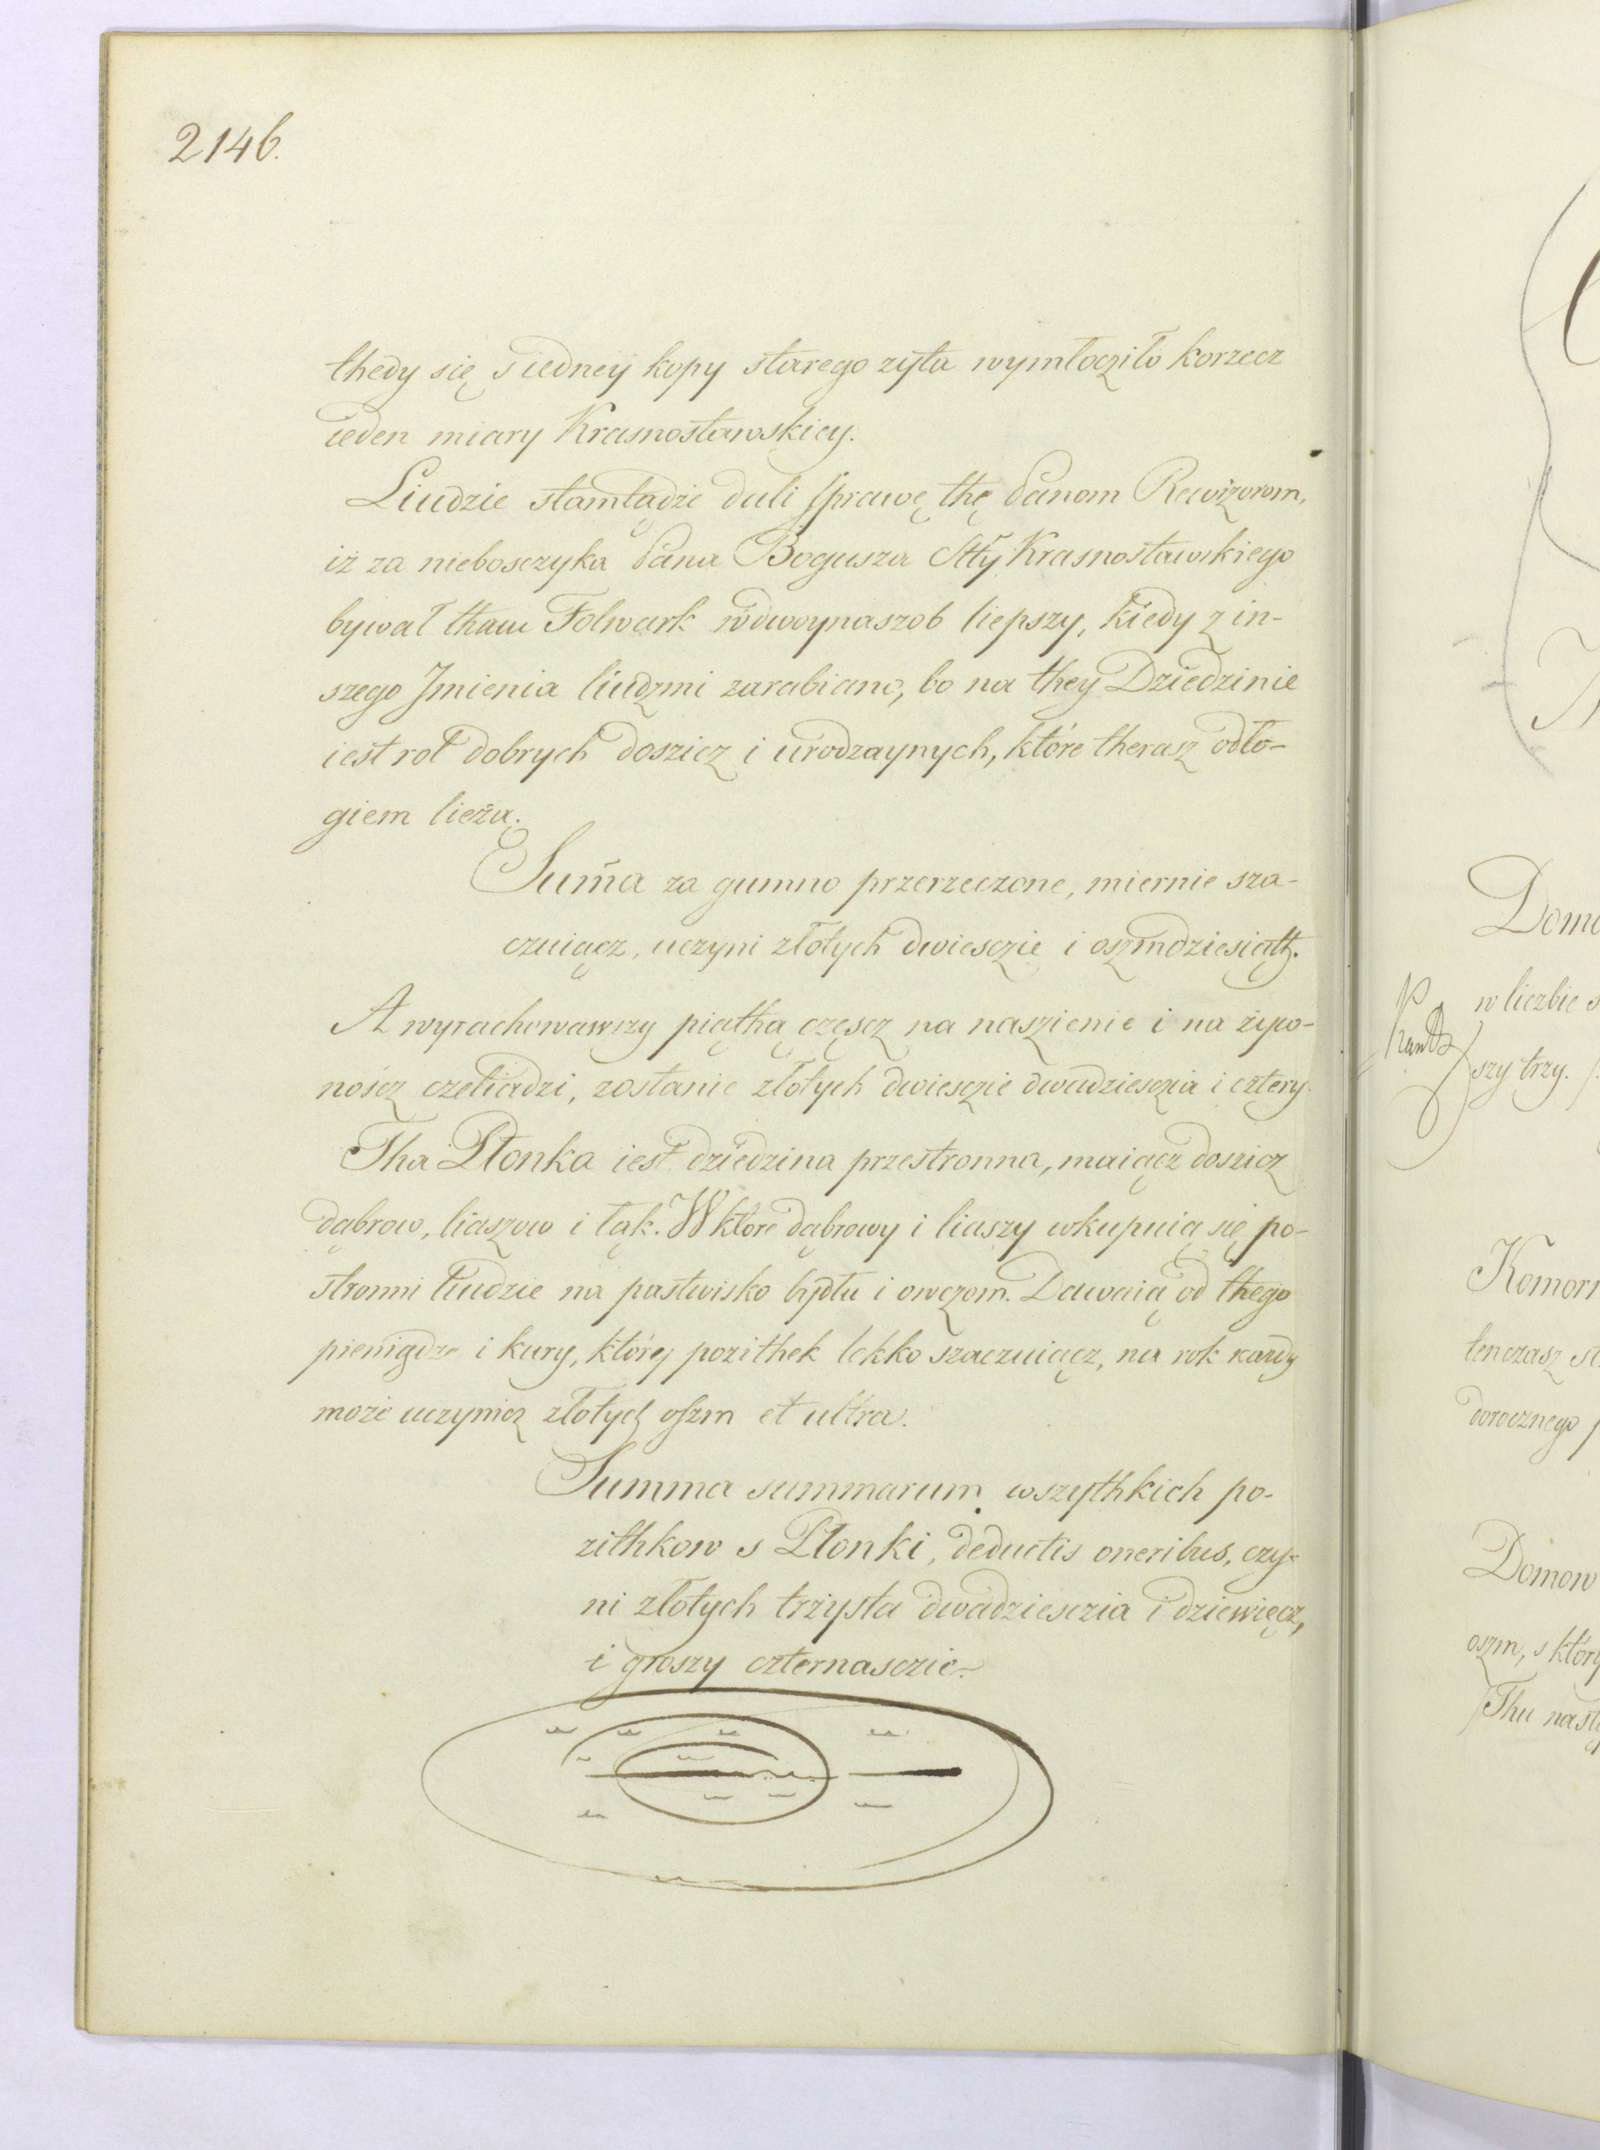 2146.
thedy się s iedney kopy starego zyta wymłocziło korzecz
ieden miary Krasnostawskiey.
Liudzie stamtądże dali sprawę thę Panom Rewizorom,
iż za niebosczyka Pana Bogusza Stty Krasnostawskiego
bywał tham Folwark wdwoynaszob liepszy, kiedy z in-
szego Jmienia liudzmi zarabiano, bo na they Dziedzinie
iest rol dobrych doszicz i urodzaynych, które therasz odło-
giem lieżą.
Sum̄a za gumno przerzeczone, miernie sza-
czuiącz, uczyni złotych dwiesczie i oszmdziesiąth.
A wyrachowawszy piąthą częscz na naszienie i na żywo-
noścz czeliadzi, zostanie złotych dwiesczie dwadziesczia i cztery.
Tha Płonka iest dziedzina przestronna, maiącz doszicz
dąbrow, liaszow i łąk. W które dąbrowy i liaszy wkupuią się po-
stronni liudzie na pastwisko bydłu i owczom. Dawaią od thego
pieniądze i kury, której pozithek lekko szaczuiącz, na rok kazdy
może uczynicz złotych oszm et ultra.
Summa summarum wszythkich po-
zithkow s Płonki, deductis oneribus, czy-
ni złotych trzysta dwadziesczia i dziewięcz,
i groszy czternasczie.
Domo
w liczbie s
szy trzy.
Komorn
tenczasz
dorocznego
Domow
oszm, s który
Thu nastę